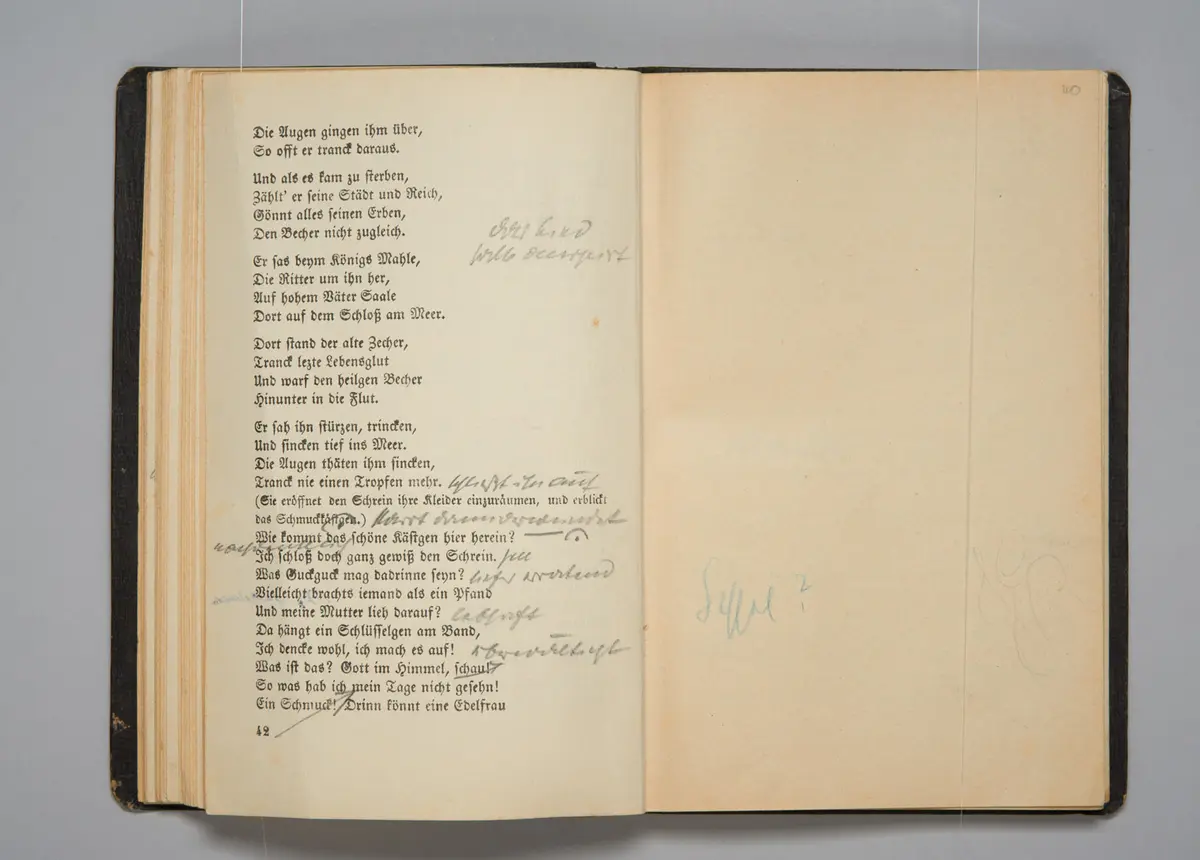 Die Augen gingen ihm über,
So offt er tranck daraus.
Und als es kam zu sterben,
Zählt' er seine Städt und Reich,
Gönnt alles seinen Erben,
Den Becher nicht zugleich.
Er sas beym Königs Mahle,
Die Ritter um ihn her,
Auf hohem Väter Saale
Dort auf dem Schloß am Meer.
Dort stand der alte Zecher,
Tranck lezte Lebensglut
Und warf den heilgen Becher
Hinunter in die Flut.
Er sah ihn stürzen, trincken,
Und sincken tief ins Meer.
Die Augen thäten ihm sincken,
Tranck nie einen Tropfen mehr.
(Sie eröffnet den Schrein ihre Kleider einzuräumen, und erblickt
das Schmuckkästgen.)
Wie kommt das schöne Kästgen hier herein?
Ich schloß doch ganz gewiß den Schrein.
Was Guckguck mag dadrinne seyn?
Vielleicht brachts iemand als ein Pfand
Und meine Mutter lieh darauf? lebhaft
Da hängt ein Schlüsselgen am Band,
Ich dencke wohl, ich mach es auf! überwältigt
Was ist das? Gott im Himmel, schau!
So was hab ich mein Tage nicht gesehn!
Ein Schmuck! Drinn könnt eine Edelfrau
42